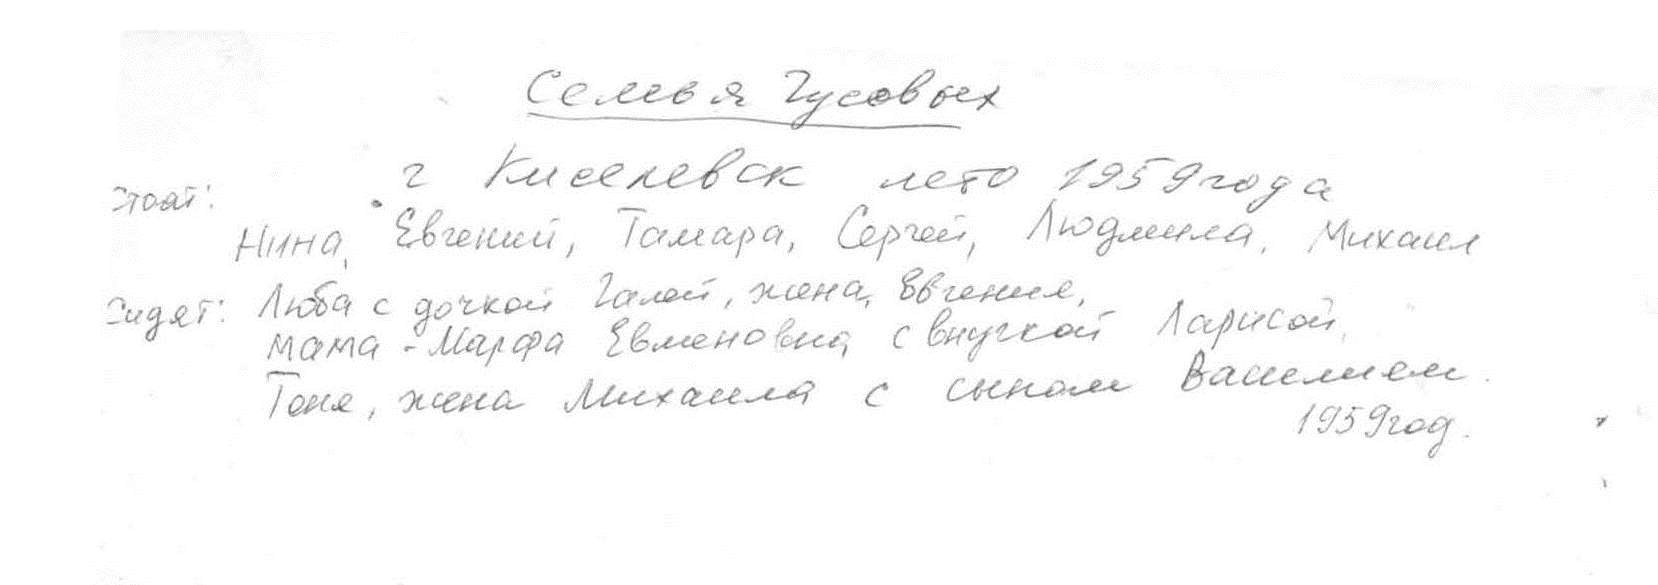 Семья Гусовых
г Киселевск лето 1959 года
Стоят:
Нина, Евгений, Тамара, Сергей, Людмила, Михаил
Сидят: Люба с дочкой Галей, жена, Евгения,
мама - Марфа Евменовна с внучкой Ларисой,
Тоня, жена Михаила с сыном Василием.
1959 год.